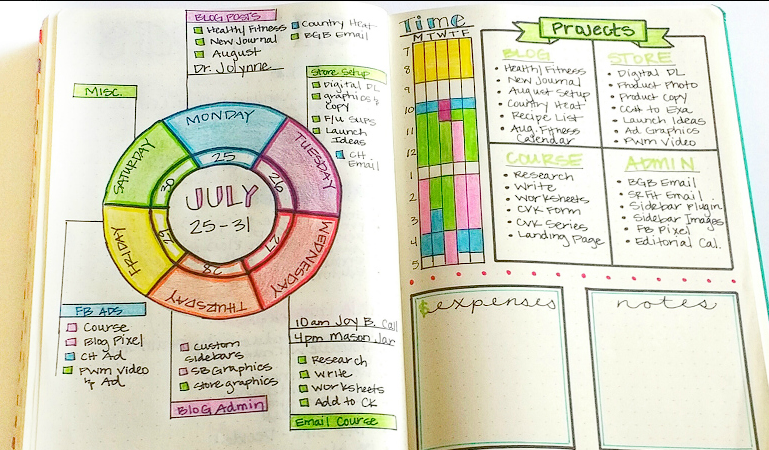 BLOG POSTS
Healthy Fitness
New Journal
August
Dr. Jolynne
Country Heat
BGB Email
MISC.
Store Setup
Digital DL
graphics &
copy
F/U SUPS
Launch
Ideas
CH
Email
MONDAY
25
TUESDAY
26
WEDNESDAY
27
THURSDAY
28
FRIDAY
29
SATURDAY
30
JULY
25-31
FB ADS
Course
Blog Pixel
CH Ad
PWM Video
& Ad
Custom
sidebars
SB Graphics
Store graphics
Blog Admin
10am Joy B. Call
4pm Mason Jar
Research
Write
Worksheets
Add to CK
Email Course
Time
M T W T F
7
8
9
10
11
12
1
2
3
4
5
Projects
BLOG
Health/Fitness
New Journal
August Setup
Country Heat
Recipe List
Aug. Fitness
Calendar
STORE
Digital DL
Product Photo
Product Copy
CCH to Exa
Launch Ideas
Ad Graphics
PWM Video
COURSE
Research
Write
Worksheets
CVK Form
CVK Series
Landing Page
ADMIN
BGB Email
SRFit Email
Sidebar Plugin
Sidebar Images
FB Pixel
Editorial Cal.
$expenses
notes